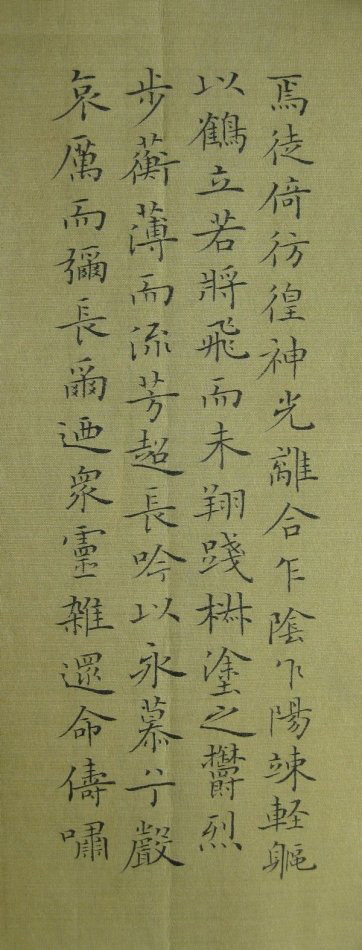 焉徙倚彷徨神光離合乍陰乍陽竦軽軀
以鶴立若將飛而未翔踐椒塗之鬱烈
步蘅薄而流芳超長吟以永慕兮聲
哀厲而彌長爾迺衆靈雑遝命儔嘯